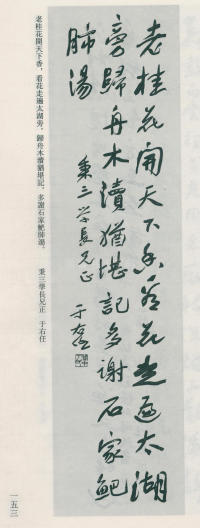 老桂花開天下香看花走遍太湖
旁歸舟木瀆猶堪記多謝石家䰾
肺湯
秉三學長兄正
于右任
老桂花開天下香，看花走遍太湖旁。歸舟木瀆猶堪記，多謝石家䰾肺湯。
秉三學長兄正　于右任
一五三